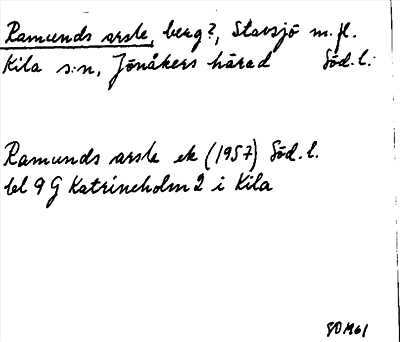 Ramunds arsle, berg?, Stavsjö m.fl.
Kila s:n, Jönåkers härad Söd.l.
Ramunds arsle ek (1957) Söd.l.
bl 9 G Katrineholm 2 i Kila